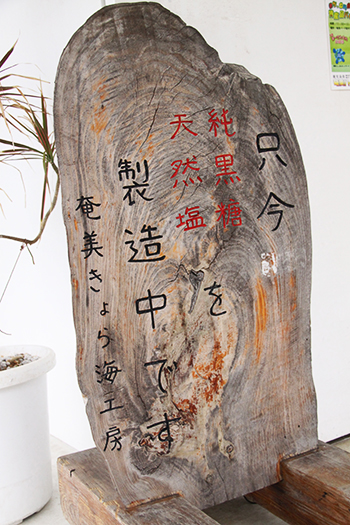 只今
純黒糖
天然塩
を
製造中です
奄美きょら海工房